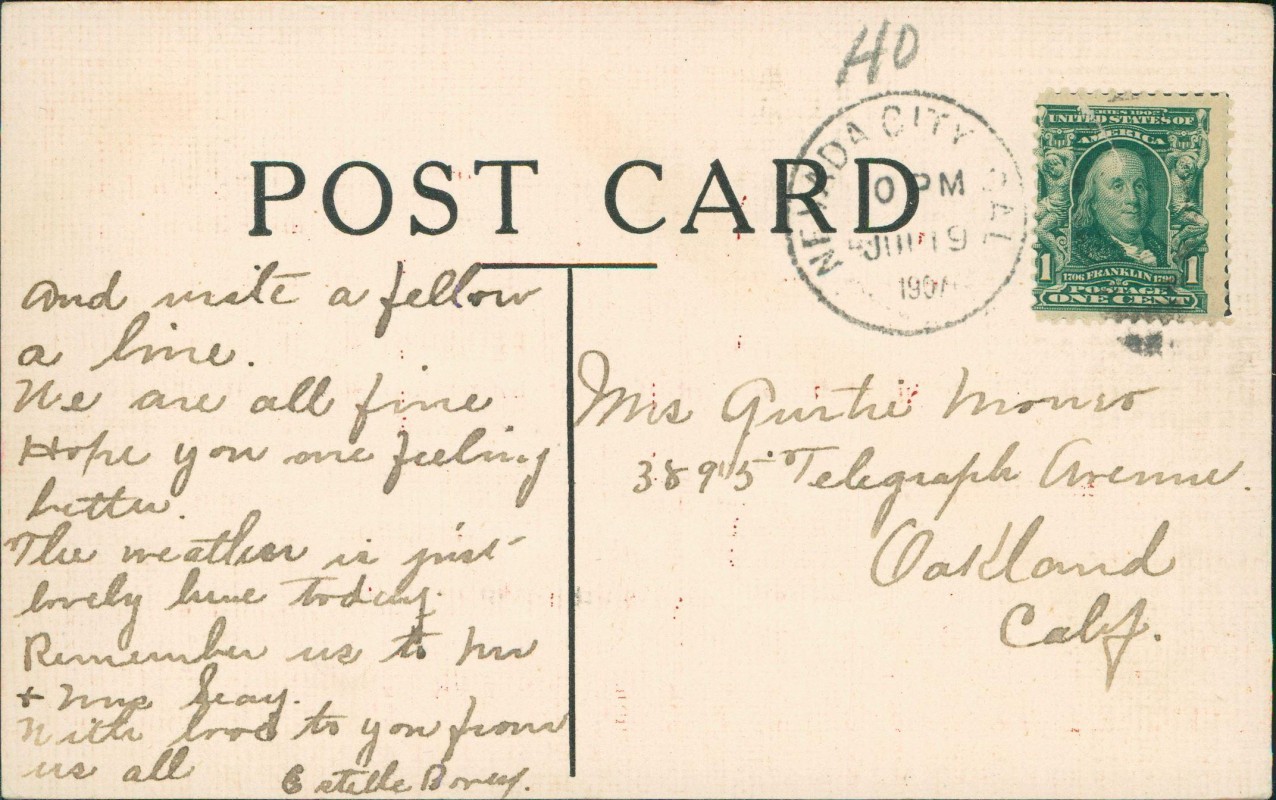 HO
NEVADA CITY CAL
PM
19
190
SERIES 1902
UNITED STATES OF
AMERICA
1 1706 FRANKLIN 1790 1
POSTAGE
ONE CENT
POST CARD
And write a fellow
a line.
We are all fine
Hope you are feeling
better.
The weather is just
lovely here today.
Remember us to Mr
+ Mrs
With love to you from
us all
Estelle
Mrs Gurtie
3895 Telegraph Avenue.
Oakland
Calf.